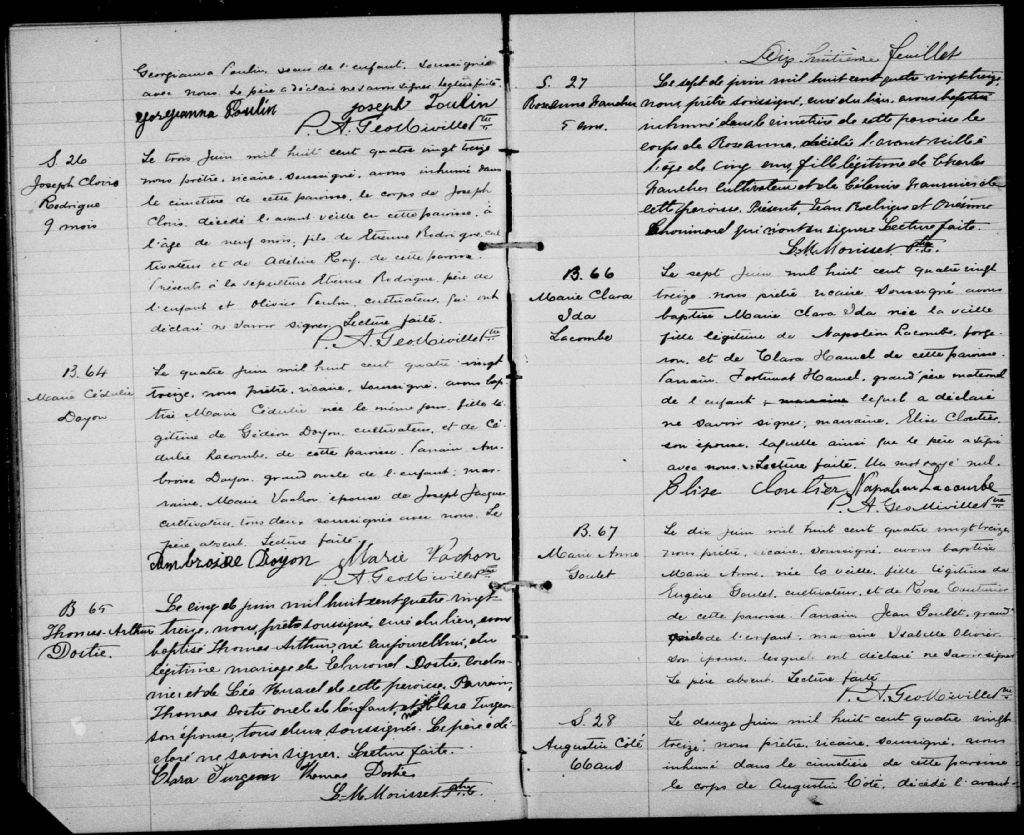 Georgianna Poulin, sœur de l'enfant, soussignés
avec nous. Le père a déclaré ne savoir signer. Lecture faite.
Joseph Poulin
P. A. Geo Miville Ptre
S. 26
Joseph Cloris
Rodrigue
9 mois
Le trois Juin mil huit cent quatre vingt treize
nous prêtre, vicaire, soussigné, avons inhumé dans
le cimetière de cette paroisse, le corps de Joseph
Cloris, décédé l'avant-veille en cette paroisse, à
l'âge de neuf mois, fils de Etienne Rodrigue, cul
tivateur et de Adeline Roy, de cette paroisse.
Présents à la sépulture Etienne Rodrigue, père de
l'enfant et Olivier Poulin, cultivateur, qui ont
déclaré ne savoir signer. Lecture faite.
P. A. Geo Miville Ptre
B. 64
Marie Cédulie
Doyon
Le quatre Juin mil huit cent quatre vingt
treize, nous prêtre, vicaire, soussigné, avons bap
tisé Marie Cédulie née le même jour, fille lé
gitime de Gédéon Doyon, cultivateur, et de Cé
dulie Lacombe, de cette paroisse. Parrain Am
broise Doyon, grand oncle de l'enfant; mar
raine, Marie Vachon épouse de Joseph Jacques
cultivateur, tous deux soussignés avec nous. Le
père absent. Lecture faite.
Ambroise Doyon Marie Vachon
P. A. Geo Miville Ptre
B 65
Thomas-Arthur
Dostie.
Le cinq de juin mil huit cent quatre vingt-
treize, nous, prêtre soussigné, curé du lieu, avons
baptisé Thomas Arthur, né aujourd'hui, du
légitime mariage de Edmond Dostie, cordon-
nier et de Léa de cette paroisse. Parrain,
Thomas Dostie oncle de l'enfant, Clara Turgeon
son épouse, tous deux soussignés. Le père a dé-
claré ne savoir signer. Lecture faite.
Clara Turgeon Thomas Dostie
L. M. Morisset Ptre
Dix huitième feuillet
S. 27
Rosanna
5 ans.
Le sept de juin mil huit cent quatre vingt treize,
nous, prêtre soussigné, curé du lieu, avons
inhumé dans le cimetière de cette paroisse le
corps de Rosanna, décédée l'avant veille à
l'âge de cinq ans, fille légitime de Charles
cultivateur et de de
cette paroisse. Présents, Jean Rodrigue et Onésime
Chouinard qui n'ont su signer. Lecture faite.
L. M. Morisset Ptre
B. 66
Marie Clara
Ida
Lacombe
Le sept Juin mil huit cent quatre vingt
treize nous prêtre vicaire soussigné avons
baptisé Marie Clara Ida née la veille
fille légitime de Napoléon Lacombe, forge
ron, et de Clara Hamel de cette paroisse.
Parrain, Fortunat Hamel, grand'père maternel
de l'enfant lequel a déclaré
ne savoir signer; marraine, Elise Cloutier
son épouse, laquelle ainsi que le père a signé
avec nous. Lecture faite. Un mot rayé nul.
Elise Cloutier Napoleon Lacombe
P. A. Geo Miville Ptre
B. 67
Marie Anne
Goulet
Le dix Juin mil huit cent quatre vingt treize
nous prêtre, vicaire, soussigné, avons baptisé
Marie Anne, née la veille, fille légitime de
Eugène Goulet, cultivateur, et de Rose Couture
de cette paroisse. Parrain Jean Goulet, grand
père de l'enfant; marraine Isabelle Olivier
son épouse, lesquels ont déclaré ne savoir signer
Le père absent. Lecture faite
P. A. Geo Miville Ptre
S. 28
Augustin Côté
66 ans
Le douze Juin mil huit cent quatre vingt
treize, nous prêtre, vicaire, soussigné, avons
inhumé dans le cimetière de cette paroisse
le corps de Augustin Côté, décédé l'avant-